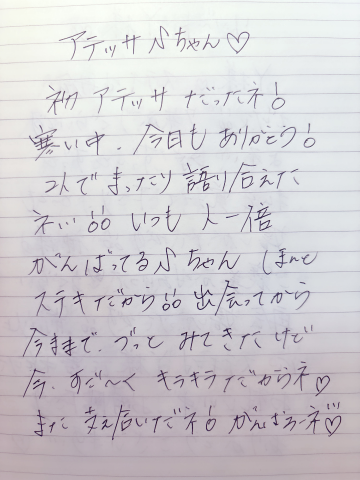 アテッサ♪ちゃん♡
初 アテッサ だったネ!
寒い中、今日も ありがとう!
2人で まったり 語り合えた
ネ… !! いつも 人一倍
がんばってる♪ちゃん ほんと
ステキだから!! 出会ってから
今まで、ずっと みてきたけど
今、すご〜く キラキラだからネ♡
また 支え合いだネ! がんばろーネ♡